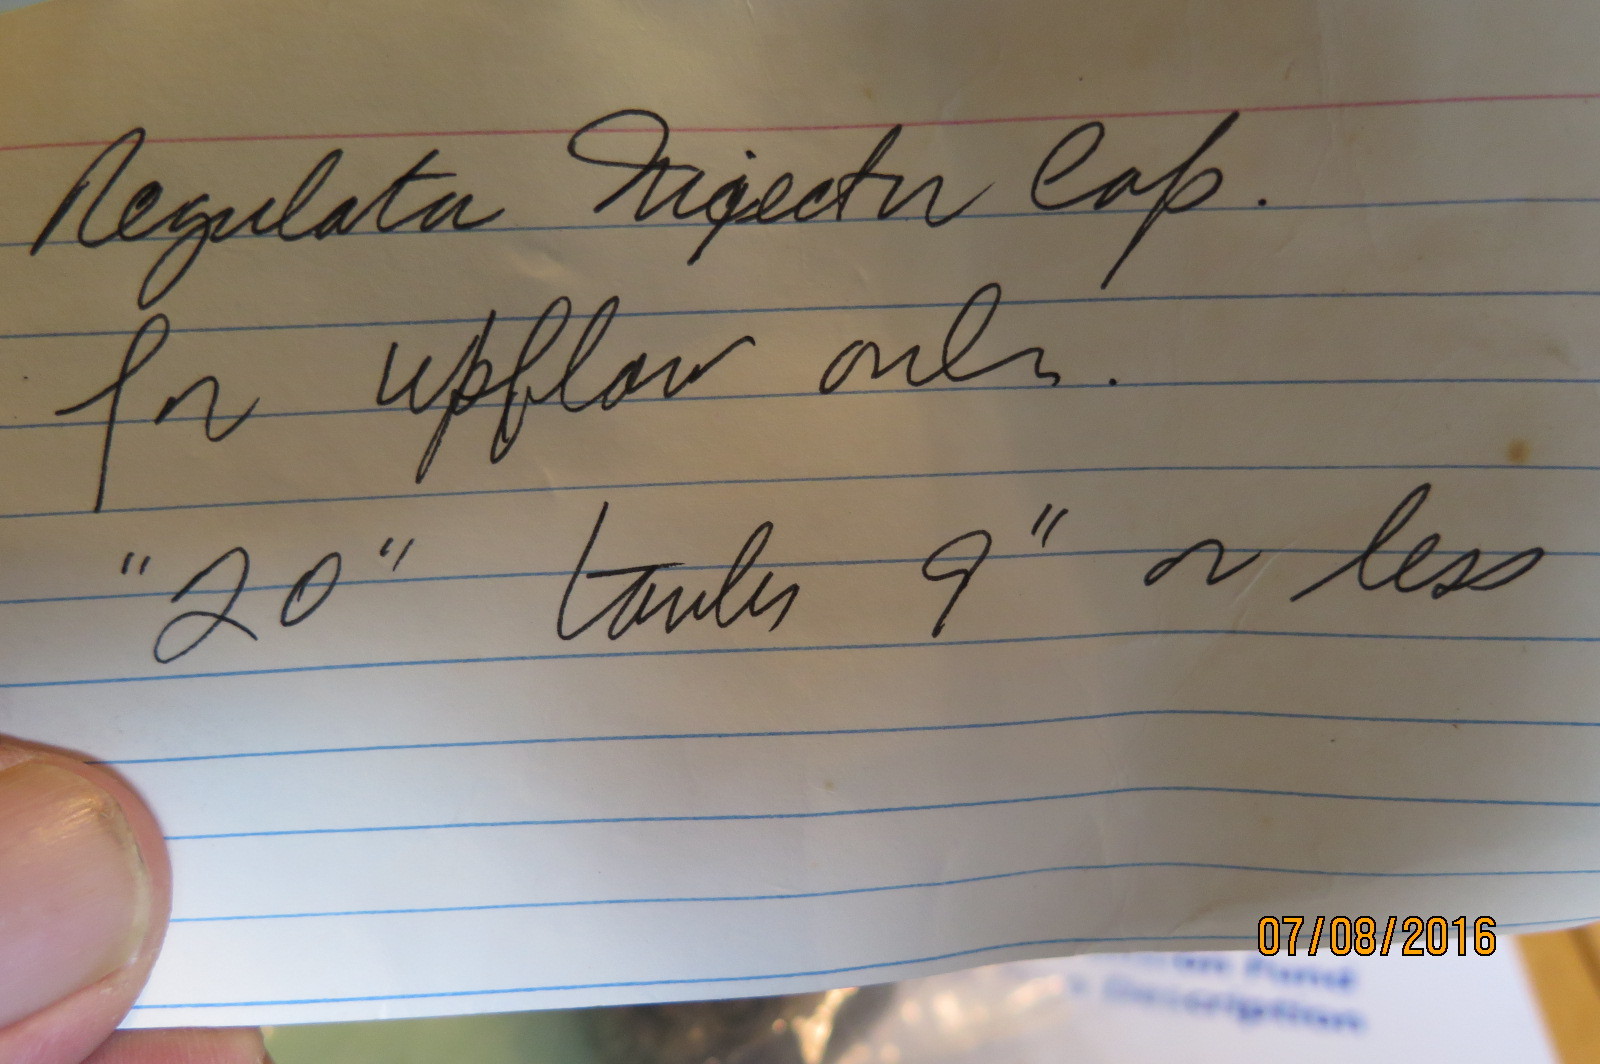 Regulator Injector Cap.
for upflow only.
"20" tanks 9" or less
07/08/2016
Description